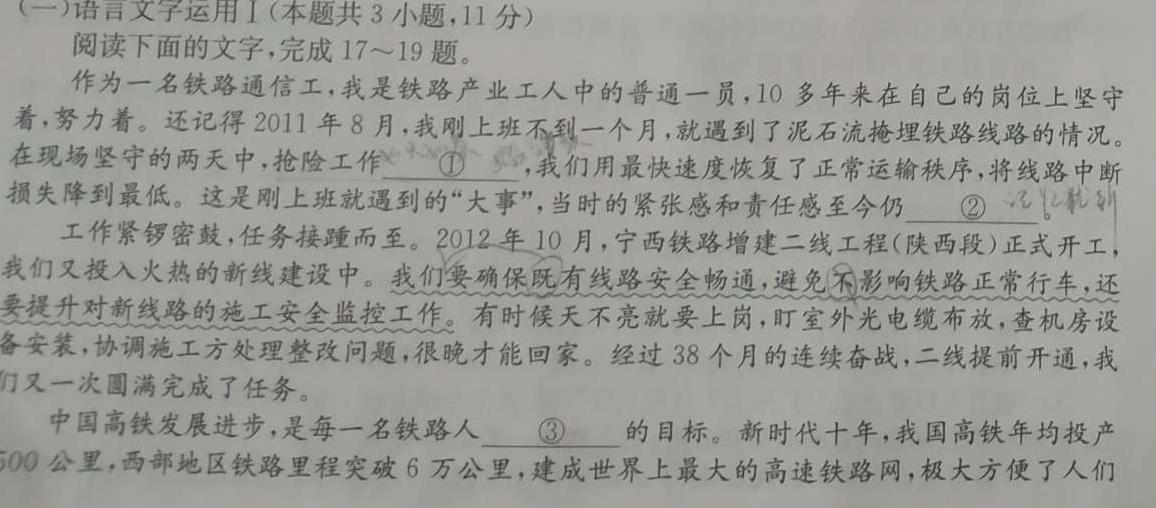 (一)语言文字运用Ⅰ(本题共3小题,11分)
阅读下面的文字,完成17～19题。
作为一名铁路通信工,我是铁路产业工人中的普通一员,10多年来在自己的岗位上坚守
着,努力着。还记得2011年8月,我刚上班不到一个月,就遇到了泥石流掩埋铁路线路的情况。
在现场坚守的两天中,抢险工作①,我们用最快速度恢复了正常运输秩序,将线路中断
损失降到最低。这是刚上班就遇到的“大事”,当时的紧张感和责任感至今仍②。记忆犹新
工作紧锣密鼓,任务接踵而至。2012年10月,宁西铁路增建二线工程(陕西段)正式开工,
我们又投入火热的新线建设中。我们要确保既有线路安全畅通,避免不影响铁路正常行车,还
要提升对新线路的施工安全监控工作。有时候天不亮就要上岗,盯室外光电缆布放,查机房设
备安装,协调施工方处理整改问题,很晚才能回家。经过38个月的连续奋战,二线提前开通,我
们又一次圆满完成了任务。
中国高铁发展进步,是每一名铁路人③的目标。新时代十年,我国高铁年均投产
500公里,西部地区铁路里程突破6万公里,建成世界上最大的高速铁路网,极大方便了人们